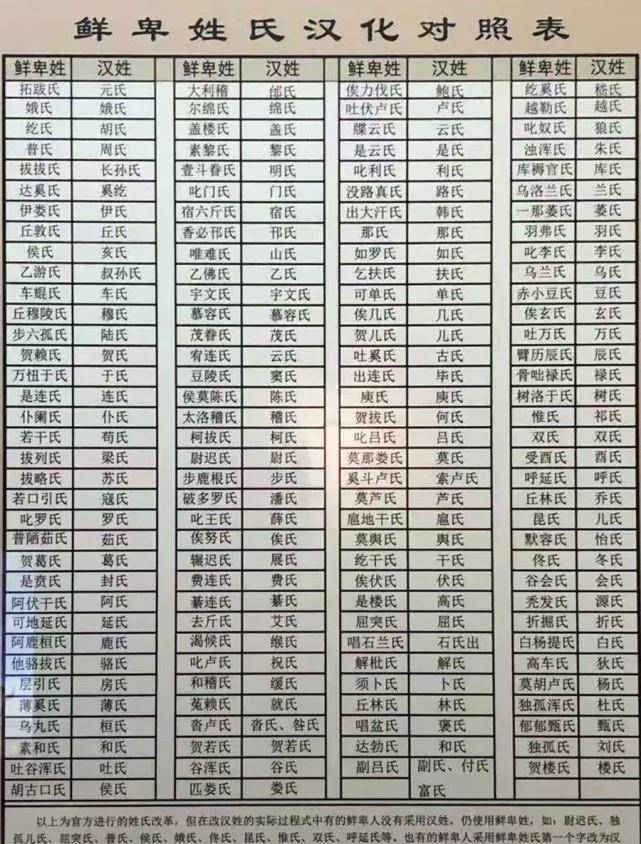 鲜卑姓氏汉化对照表
鲜卑姓 汉姓 鲜卑姓 汉姓 鲜卑姓 汉姓 鲜卑姓 汉姓
拓跋氏 元氏 大利稽 郃氏 俟力伐氏 鲍氏 纥奚氏 嵇氏
娥氏 娥氏 尔绵氏 绵氏 吐伏卢氏 卢氏 越勒氏 越氏
纥氏 胡氏 盖楼氏 盖氏 牒云氏 云氏 叱奴氏 狼氏
普氏 周氏 素黎氏 黎氏 是云氏 是氏 浊浑氏 朱氏
拔拔氏 长孙氏 壹斗眷氏 明氏 叱利氏 利氏 库褥官氏 库氏
达奚氏 奚纥 叱门氏 门氏 没路真氏 路氏 乌洛兰氏 兰氏
伊娄氏 伊氏 宿六斤氏 宿氏 出大汗氏 韩氏 一那蒌氏 蒌氏
丘敦氏 丘氏 香必邗氏 邗氏 那氏 那氏 羽弗氏 羽氏
侯氏 亥氏 唯难氏 山氏 如罗氏 如氏 叱李氏 李氏
乙游氏 叔孙氏 乙佛氏 乙氏 乞扶氏 扶氏 乌兰氏 乌氏
车辊氏 车氏 宇文氏 宇文氏 可单氏 单氏 赤小豆氏 豆氏
丘穆陵氏 穆氏 慕容氏 慕容氏 俟几氏 几氏 俟玄氏 玄氏
步六孤氏 陆氏 茂眷氏 茂氏 贺儿氏 儿氏 吐万氏 万氏
贺赖氏 贺氏 宥连氏 云氏 吐奚氏 古氏 臂历辰氏 辰氏
万忸于氏 于氏 豆陵氏 窦氏 出连氏 毕氏 骨咄禄氏 禄氏
是连氏 连氏 侯莫陈氏 陈氏 庾氏 庾氏 树洛于氏 树氏
仆阑氏 仆氏 太洛稽氏 稽氏 贺拔氏 何氏 惟氏 祁氏
若干氏 苟氏 柯拔氏 柯氏 叱吕氏 吕氏 双氏 双氏
拔列氏 梁氏 尉迟氏 尉氏 莫那娄氏 莫氏 受酉氏 酉氏
拔略氏 苏氏 步鹿根氏 步氏 奚斗卢氏 索卢氏 呼延氏 呼氏
若口引氏 寇氏 破多罗氏 潘氏 莫芦氏 芦氏 丘林氏 乔氏
叱罗氏 罗氏 叱王氏 薛氏 扈地干氏 扈氏 昆氏 儿氏
普陋茹氏 茹氏 俟努氏 俟氏 莫舆氏 舆氏 默容氏 怡氏
贺葛氏 葛氏 辗迟氏 展氏 纥干氏 干氏 佟氏 冬氏
是贲氏 封氏 费连氏 费氏 俟伏氏 伏氏 谷会氏 会氏
阿伏干氏 阿氏 綦连氏 綦氏 是楼氏 高氏 秃发氏 源氏
可地延氏 延氏 去斤氏 艾氏 屈突氏 屈氏 折掘氏 折氏
阿鹿桓氏 鹿氏 渴候氏 缑氏 唱石兰氏 石氏出 白杨提氏 白氏
他骆拔氏 骆氏 叱卢氏 祝氏 解枇氏 解氏 高车氏 狄氏
层引氏 房氏 和稽氏 缓氏 须卜氏 卜氏 莫胡卢氏 杨氏
薄奚氏 薄氏 菟赖氏 就氏 丘林氏 林氏 独孤浑氏 杜氏
乌丸氏 桓氏 沓卢氏 沓氏、咎氏 唱盆氏 褒氏 郁郁甄氏 甄氏
素和氏 和氏 贺若氏 贺若氏 达勃氏 和氏 独孤氏 刘氏
吐谷浑氏 吐氏 谷浑氏 谷氏 副吕氏 副氏、付氏 贺楼氏 楼氏
富氏
胡古口氏 侯氏 匹娄氏 娄氏
以上为官方进行的姓氏改革，但在改汉姓的实际过程式中有的鲜卑人没有采用汉姓，仍使用鲜卑姓，如：尉迟氏、独
孤儿氏、屈突氏、普氏、侯氏、娥氏、佟氏、昆氏、惟氏、双氏、呼延氏等。也有的鲜卑人采用鲜卑姓氏第一个字改为汉